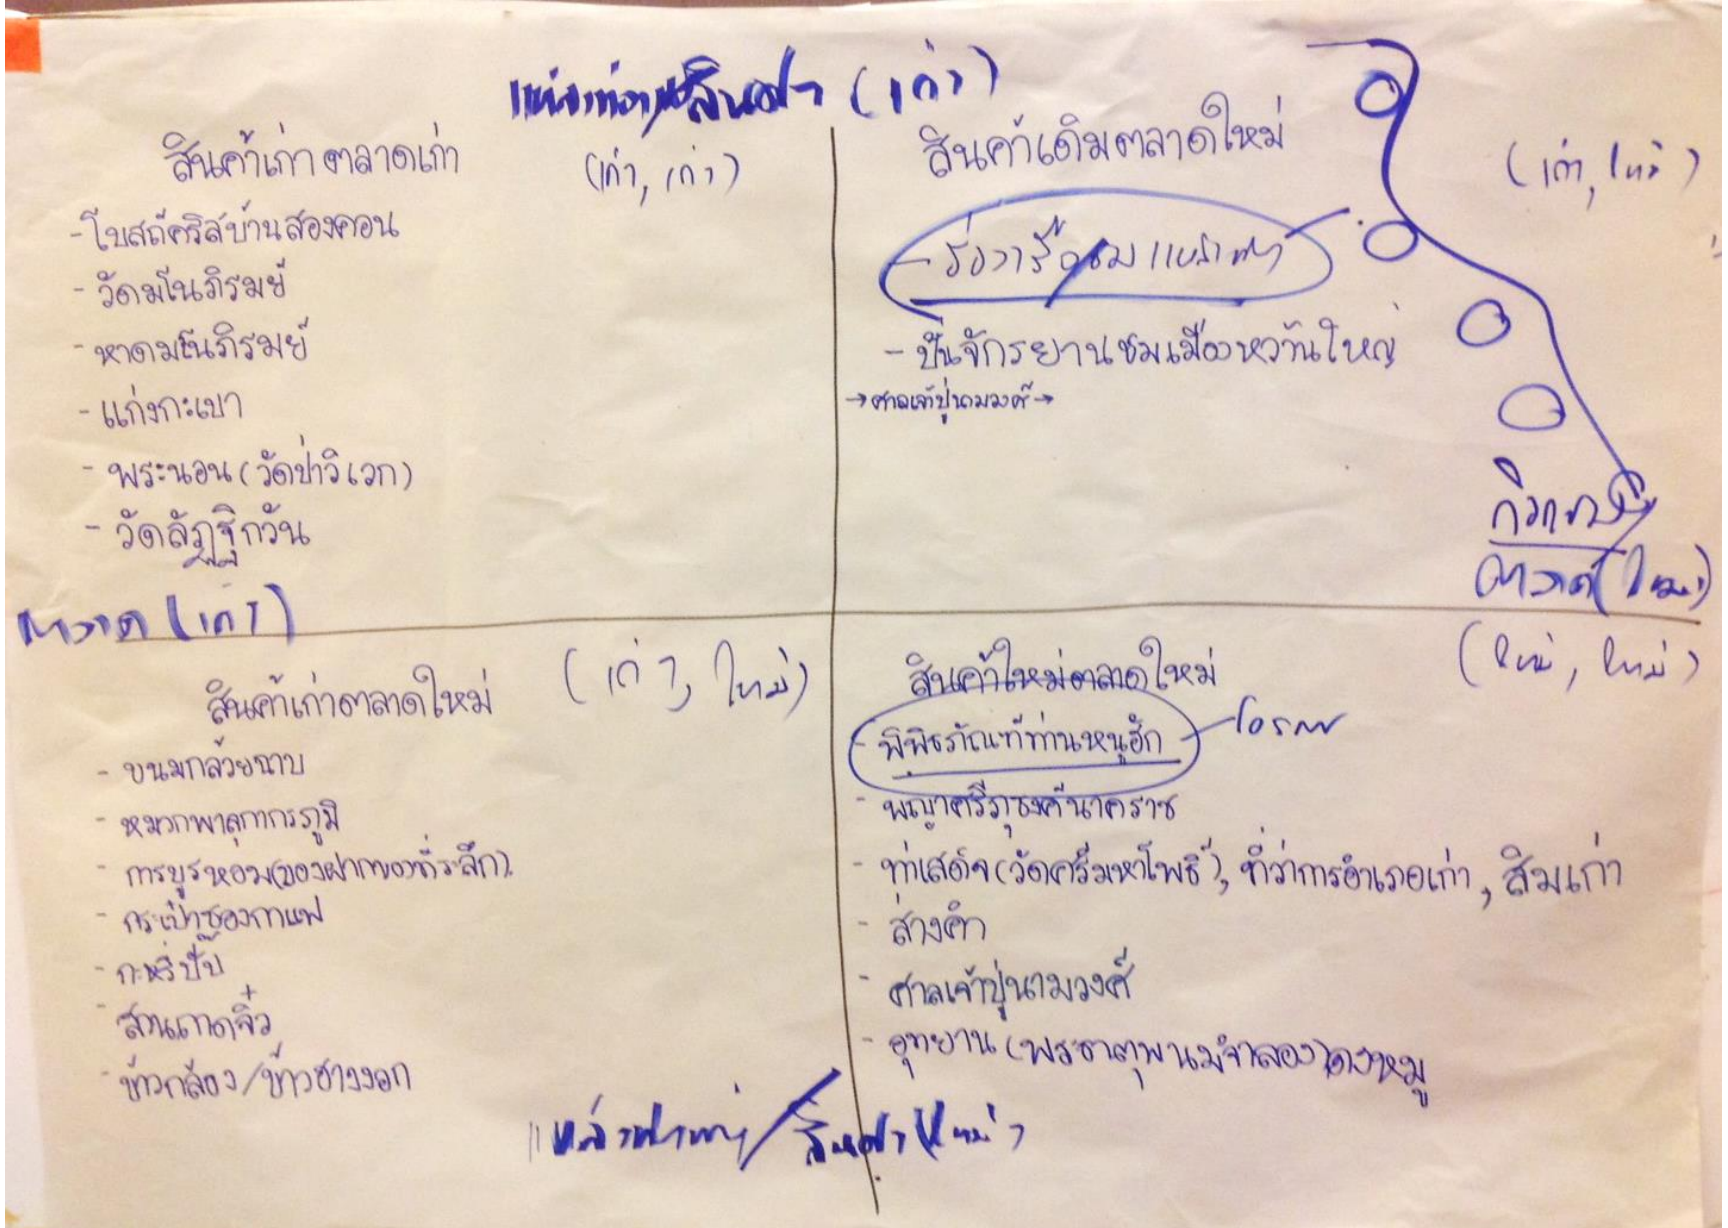 สินค้า (เก่า)
สินค้าเก่า ตลาดเก่า
(เก่า, เก่า)
- โบสถ์คริสบ้านสองคอน
- วัดมโนภิรมย์
- หาดมโนภิรมย์
- แก่งกะเบา
- พระนอน (วัดป่าวิเวก)
- วัดลัฏฐิกวัน
สินค้าเดิมตลาดใหม่
(เก่า, ใหม่)
- ล่องเรือชม
- ปั่นจักรยานชมเมืองหว้านใหญ่
→ ศาลเจ้าปู่นามวงศ์ →
ตลาด (ใหม่)
ตลาด (เก่า)
สินค้าเก่าตลาดใหม่
(เก่า, ใหม่)
- ขนมกล้วยฉาบ
- หมวกพาลุกากรภูมิ
- การบูรหอม(ของฝากของที่ระลึก)
- กระเป๋าซองกาแฟ
- กะหรี่ปั๊บ
- สานถาดจิ๋ว
- ข้าวกล้อง/ข้าวฮางงอก
สินค้าใหม่ตลาดใหม่
(ใหม่, ใหม่)
- พิพิธภัณฑ์ท่านหนูฮัก
- พญาศรีภุชงค์นาคราช
- ท่าเสด็จ(วัดศรีมหาโพธิ์), ที่ว่าการอำเภอเก่า, สิมเก่า
- ส่างคำ
- ศาลเจ้าปู่นามวงศ์
- อุทยาน (พระธาตุพนมจำลอง)ดงหมู
สินค้า (ใหม่)